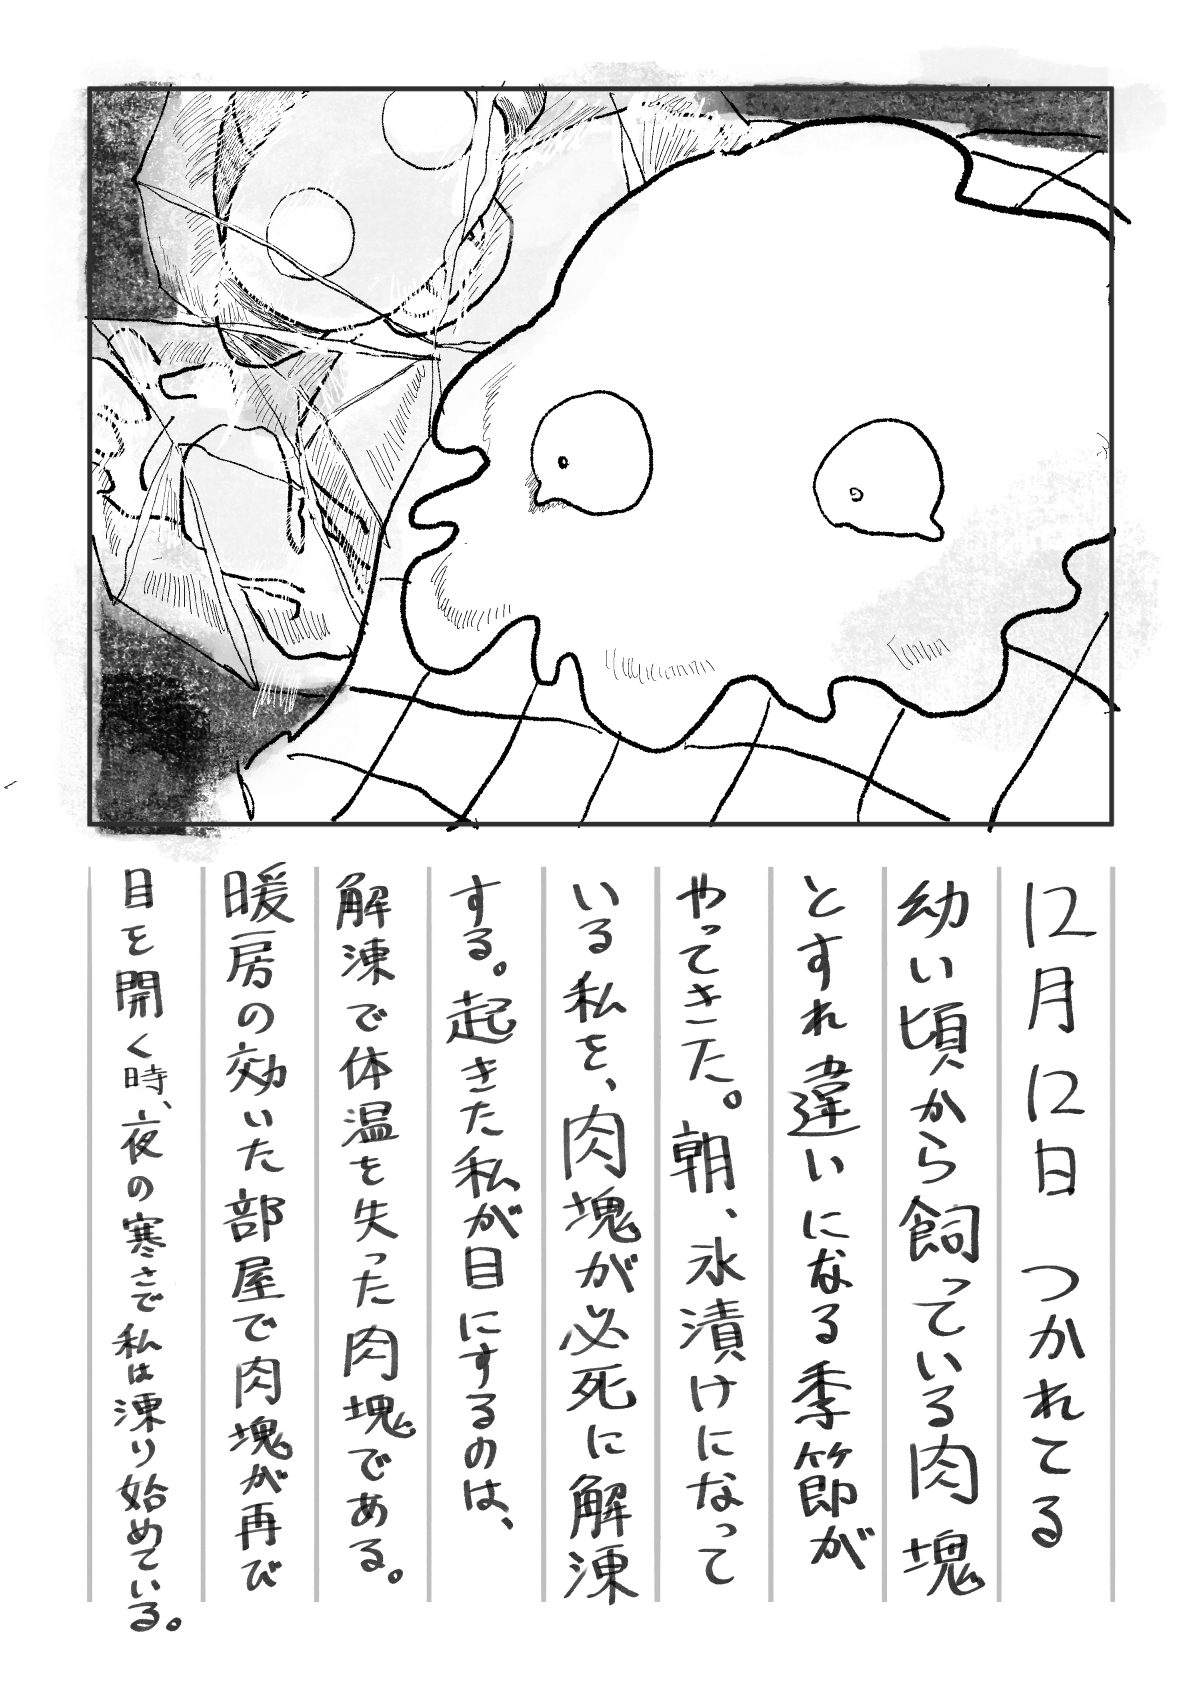 12月12日 つかれてる
幼い頃から飼っている肉塊
とすれ違いになる季節が
やってきた。朝、氷漬けになって
いる私を、肉塊が必死に解凍
する。起きた私が目にするのは、
解凍で体温を失った肉塊である。
暖房の効いた部屋で肉塊が再び
目を開く時、夜の寒さで私は凍り始めている。